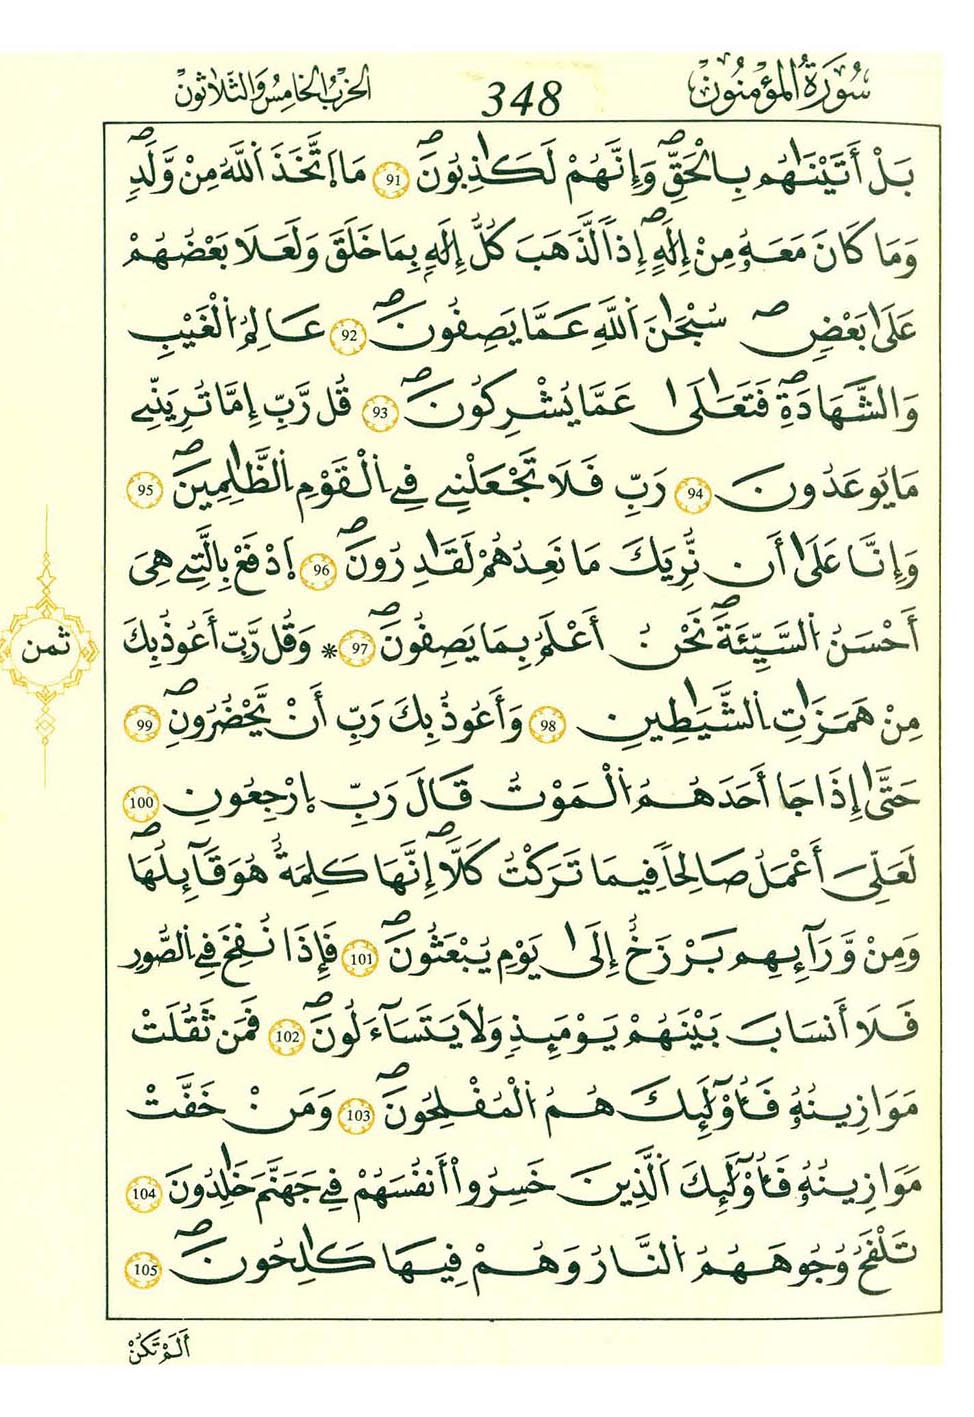 سُورَةُ الْمُؤْمِنُونَ 348 الحِزْبُ الْخَامِسُ وَالثَّلَاثُونَ
بَلْ أَتَيْنَٰهُم بِالْحَقِّ وَإِنَّهُمْ لَكَٰذِبُونَ 91 مَا اَتَّخَذَ اَللَّهُ مِنْ وَّلَدٍ
وَمَا كَانَ مَعَهُۥ مِنْ إِلَٰهٍ إِذاً لَّذَهَبَ كُلُّ إِلَٰهِۢ بِمَا خَلَقَ وَلَعَلَا بَعْضُهُمْ
عَلَىٰ بَعْضٍ سُبْحَٰنَ اَللَّهِ عَمَّا يَصِفُونَ 92 عَالِمُ اُلْغَيْبِ
وَالشَّهَادَةِ فَتَعَٰلَىٰ عَمَّا يُشْرِكُونَ 93 قُل رَّبِّ إِمَّا تُرِيَنِّے
مَا يُوعَدُونَ 94 رَبِّ فَلَا تَجْعَلْنِے فِے اِلْقَوْمِ اِلظَّٰلِمِينَ 95
وَإِنَّا عَلَىٰ أَن نُّرِيَكَ مَا نَعِدُهُمْ لَقَٰدِرُونَ 96 اَدْفَعْ بِالَّتِے هِيَ
أَحْسَنُ اُلسَّيِّئَةَ نَحْنُ أَعْلَمُ بِمَا يَصِفُونَ 97 * وَقُل رَّبِّ أَعُوذُ بِكَ
ثمن
مِنْ هَمَزَٰتِ اِلشَّيَٰطِينِ 98 وَأَعُوذُ بِكَ رَبِّ أَنْ يَّحْضُرُونِ 99
حَتَّىٰ إِذَا جَا أَحَدَهُمُ اُلْمَوْتُ قَالَ رَبِّ اِرْجِعُونِ 100
لَعَلِّيَ أَعْمَلُ صَالِحاً فِيمَا تَرَكْتُ كَلَّا إِنَّهَا كَلِمَةٌ هُوَ قَآئِلُهَا
وَمِنْ وَّرَآئِهِم بَرْزَخٌ إِلَىٰ يَوْمِ يُبْعَثُونَ 101 فَإِذَا نُفِخَ فِے اِلصُّورِ
فَلَا أَنسَابَ بَيْنَهُمْ يَوْمَئِذٍ وَلَا يَتَسَآءَلُونَ 102 فَمَن ثَقُلَتْ
مَوَازِينُهُۥ فَأُوْلَٰٓئِكَ هُمُ اُلْمُفْلِحُونَ 103 وَمَنْ خَفَّتْ
مَوَازِينُهُۥ فَأُوْلَٰٓئِكَ اَلَّذِينَ خَسِرُواْ أَنفُسَهُمْ فِے جَهَنَّمَ خَٰلِدُونَ 104
تَلْفَحُ وُجُوهَهُمُ اُلنَّارُ وَهُمْ فِيهَا كَٰلِحُونَ 105
أَلَمْ تَكُنْ